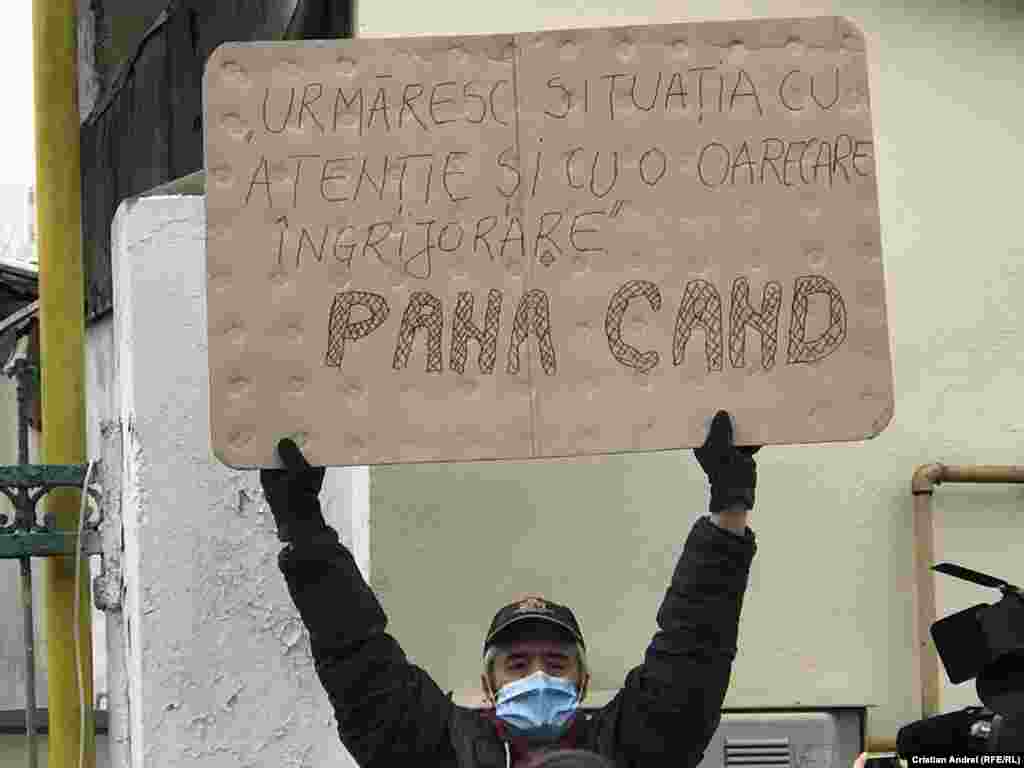 „URMĂRESC SITUAȚIA CU
ATENȚIE ȘI CU O OARECARE
ÎNGRIJORARE”
PANA CAND
Cristian Andrei (RFE/RL)